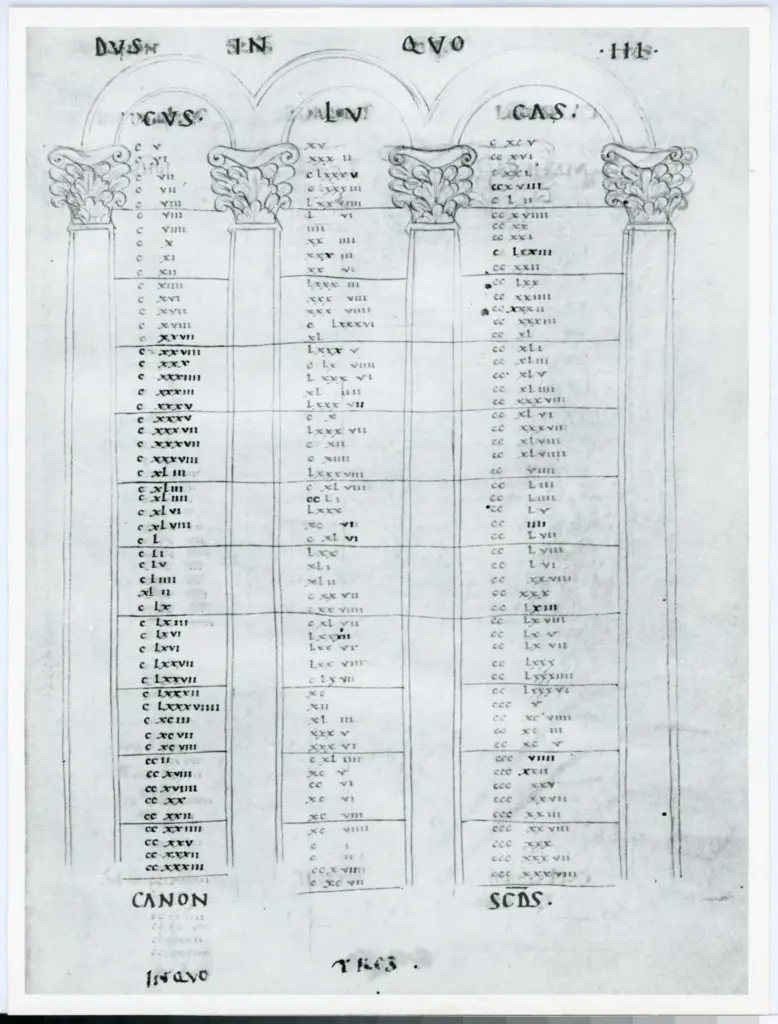 DVSN IN QVO ·III·
CVS. LV CAS.
c v
c vi
c vii
c vii
c viii
c viii
c viiii
c x
c xi
c xii
c xiiii
c xvi
c xvii
c xviii
c xxvii
c xxviii
c xxx
c xxxiiii
c xxxiii
c xxxv
c xxxv
c xxxvii
c xxxvii
c xxxviii
c xLiii
c xLiii
c xLiiii
c xLvi
c xLviii
c L
c Li
c Lv
c Liiii
xL ii
c Lx
c Lxiii
c Lxvi
c Lxvi
c Lxxvii
c Lxxvii
c Lxxxvii
c Lxxxviiii
c xciii
c xcvii
c xcviii
cc ii
cc xviii
cc xviiii
cc xx
cc xxii
cc xxiiii
cc xxv
cc xxxii
cc xxxiii
xv
xxx ii
c Lxxxv
L vi
iiii
xx iiii
xxx iii
xx vi
Lxxx iii
xxx viii
xxx viiii
c Lxxxvi
xL
Lxxx v
c Lx viiii
L xxx vi
xL iiii
Lxxx vii
c x
Lxxx vii
c xii
c xiiii
Lxxxviii
c xL viii
cc Li
Lxxx
xc vi
c xL vi
Lxx
xLi
xL ii
c xx vii
c xx viiii
c xL vii
c Lx vii
xc
xii
xL iii
xxx v
xxx vi
c xL iiii
xc v
cc vi
xc vi
xc viii
xc viiii
c i
c ii
c xc vii
c xc v
cc xvi
cc xviii
c L ii
cc xviiii
cc xx
cc xxi
c Lxxiii
cc xxii
cc Lxx
cc xxiiii
cc xxxii
cc xxxiii
cc xL
cc xLi
cc xLiii
cc xLv
cc xLiiii
cc xxxviii
cc xL vi
cc xxxvii
cc xLviii
cc xLviiii
cc viiii
cc Liii
cc Liiii
cc Lv
cc iiii
cc Lvii
cc Lviii
cc Lvi
cc xxviii
cc xxx
cc Lxiii
cc Lxviii
cc Lx v
cc Lx vii
cc Lxxx
cc Lxxxiiii
cc Lxxxvi
ccc v
cc xc viiii
cc xc iii
cc xc v
ccc viiii
ccc xxii
ccc xxv
ccc xxvii
ccc xxiii
ccc xxviii
ccc xxx
ccc xxxvii
ccc xxxviii
CANON SCDS.
INQVO TRES .